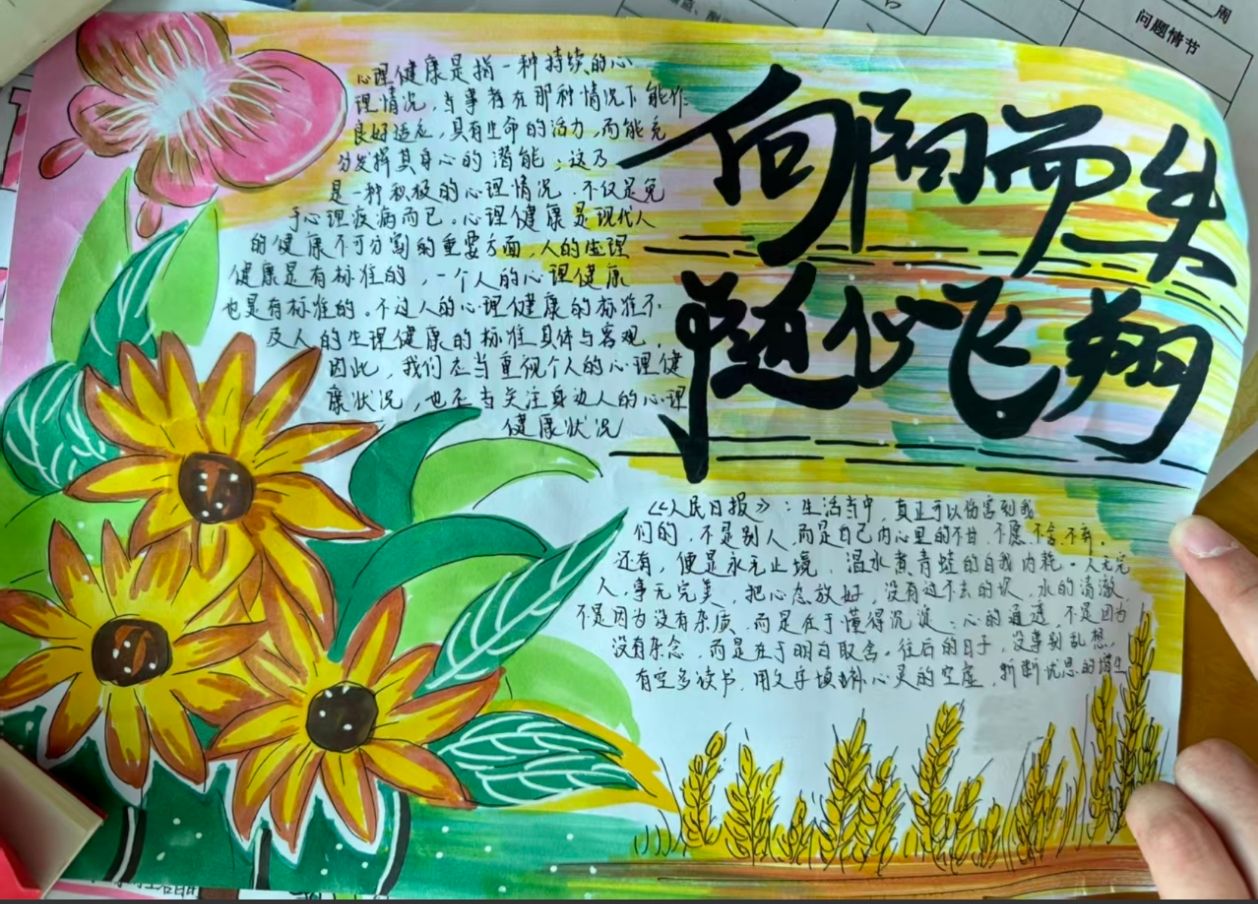 问题情节
周
向阳而生
随心飞翔
心理健康是指一种持续的心
理情况,当事者在那种情况下能作
良好适应,具有生命的活力,而能充
分发挥其身心的潜能;这乃
是一种积极的心理情况,不仅是免
于心理疾病而已。心理健康是现代人
的健康不可分割的重要方面,人的生理
健康是有标准的,一个人的心理健康
也是有标准的。不过人的心理健康的标准不
及人的生理健康的标准具体与客观。
因此,我们应当重视个人的心理健
康状况,也应当关注身边人的心理
健康状况
《人民日报》:生活当中,真正可以伤害到我
们的,不是别人,而是自己内心里的不甘、不愿、不舍、不弃。
还有,便是永无止境、温水煮青蛙的自我内耗。人无完
人,事无完美,把心态放好,没有过不去的坎,水的清澈,
不是因为没有杂质,而是在于懂得沉淀;心的通透,不是因为
没有杂念,而是在于明白取舍。往后的日子,没事别乱想,
有空多读书,用文字填补心灵的空虚,斩断忧思的增生